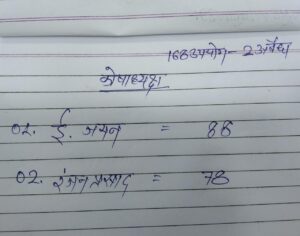 168 उपयोग - 2 अवैध
कोषाध्यक्ष
01. ई. जयन = 88
02. रंजन प्रसाद = 78